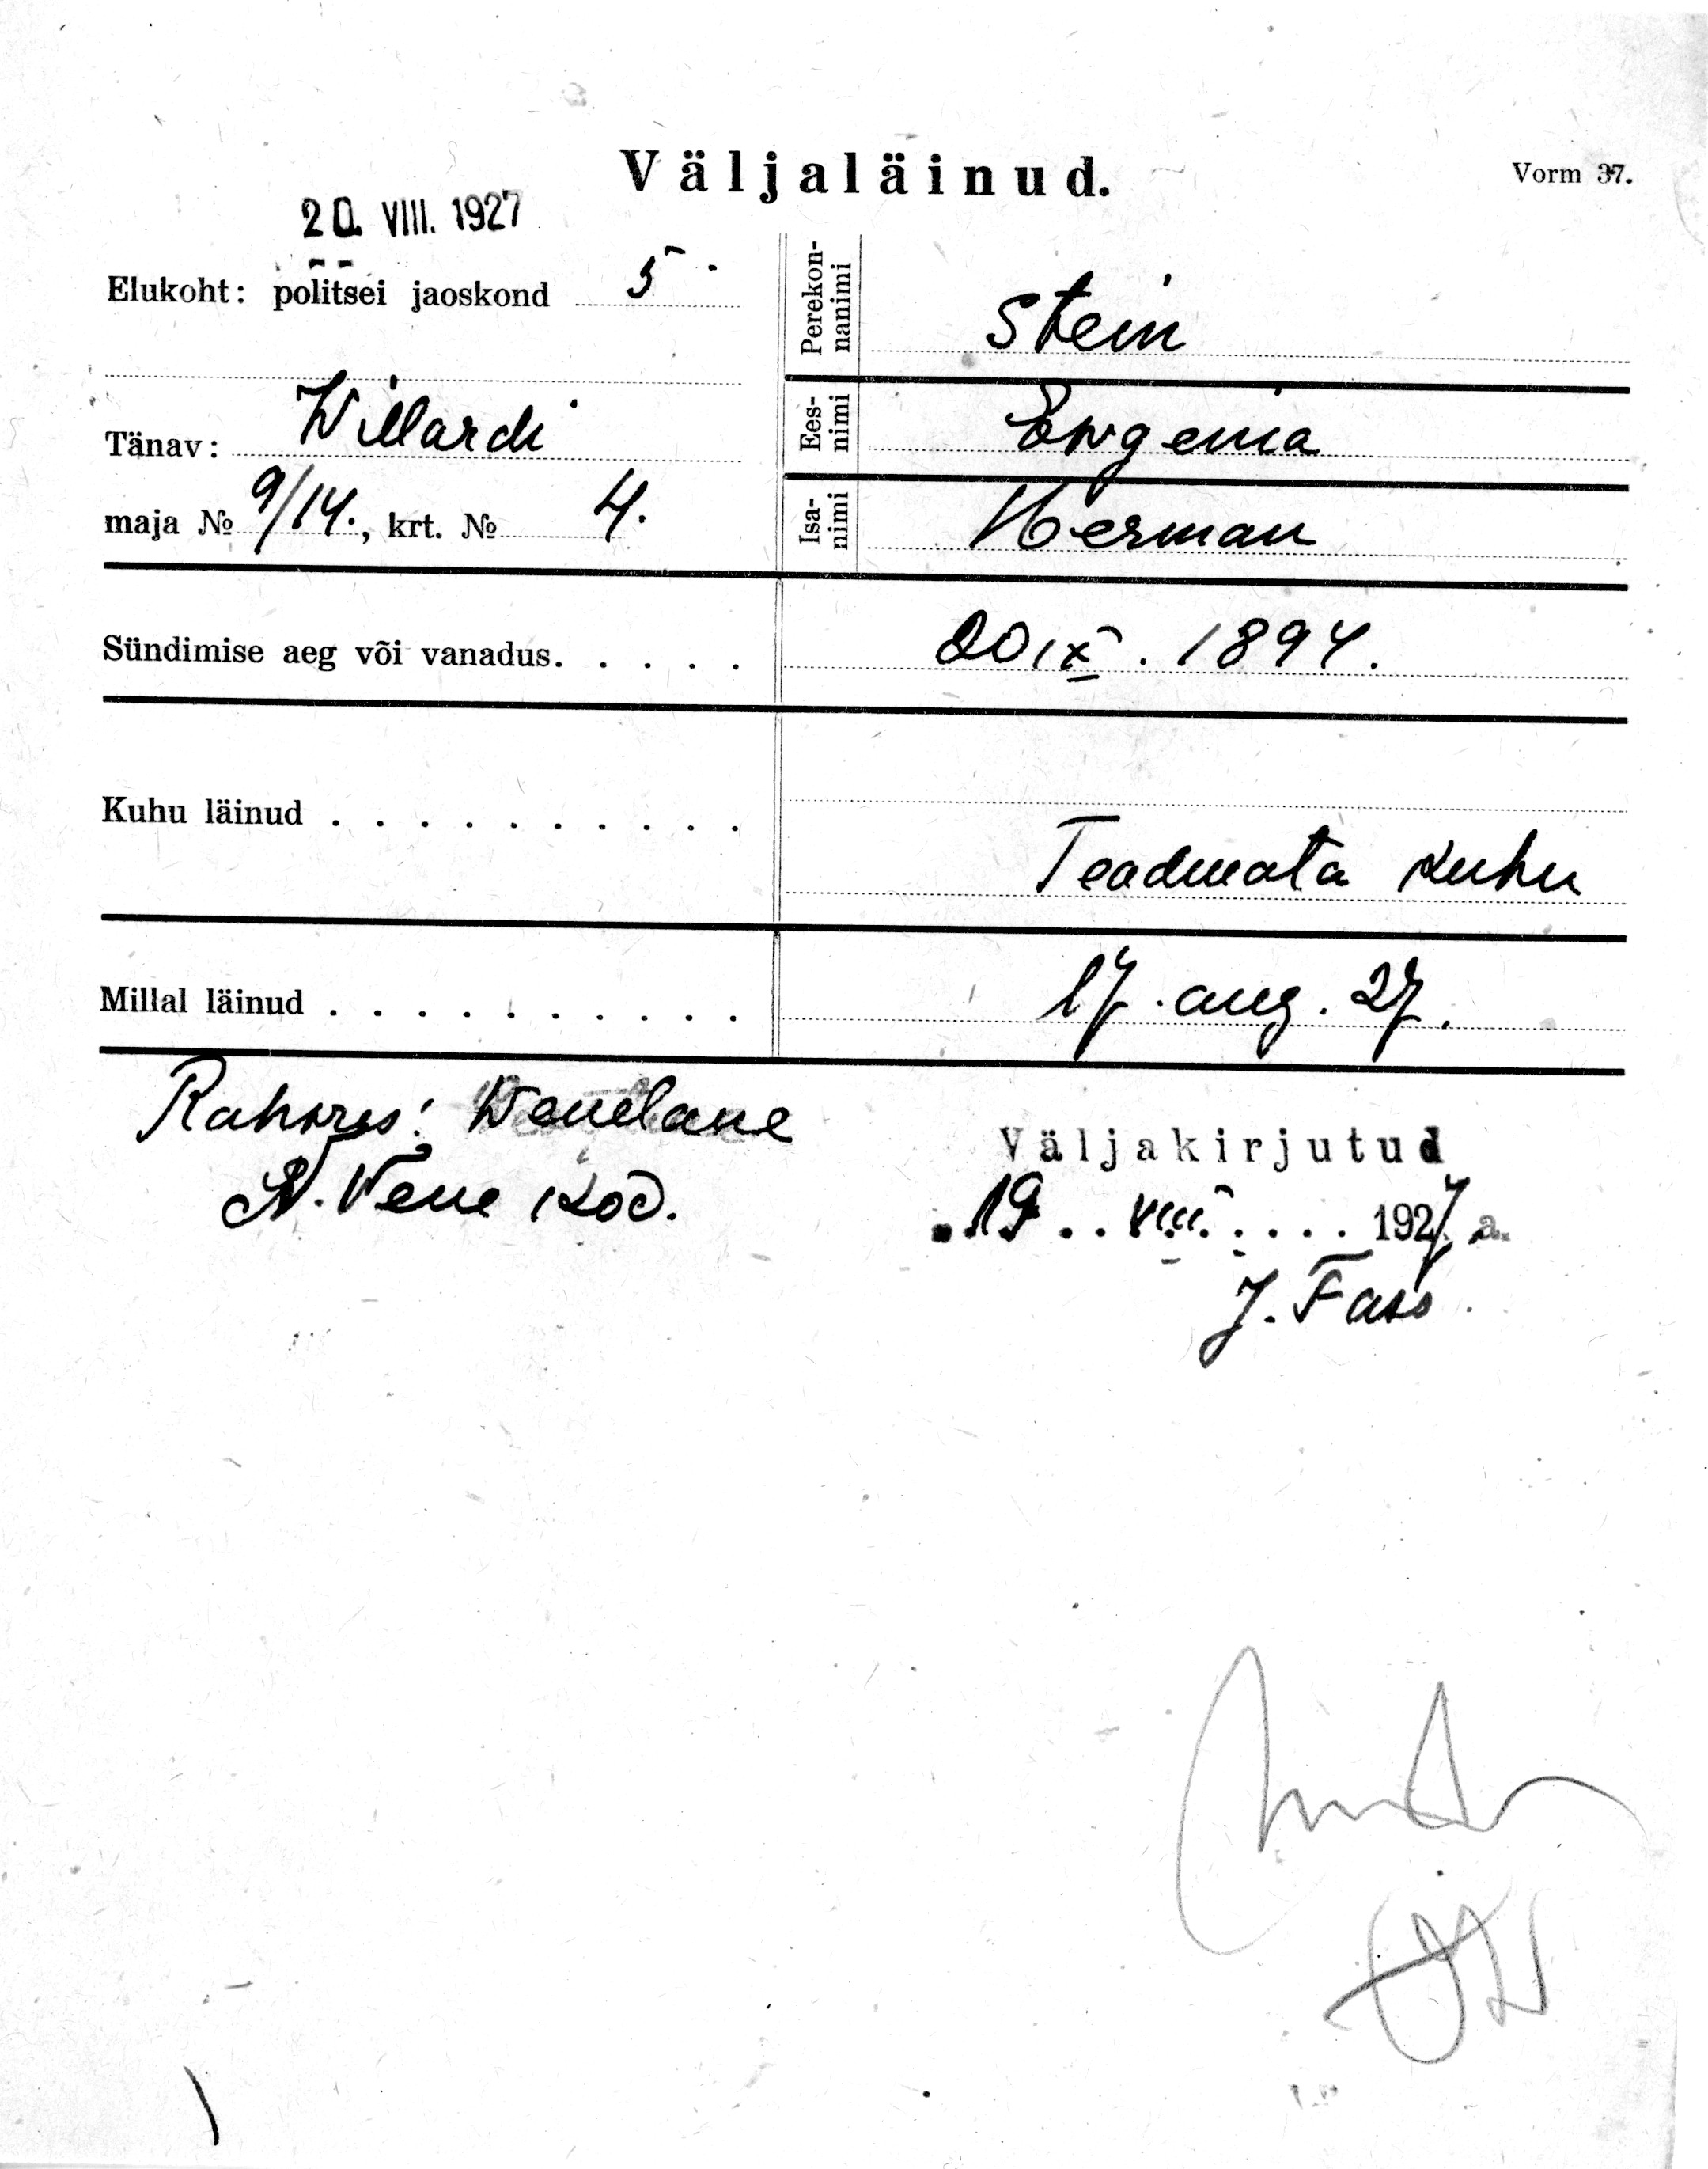 Väljaläinud.
Vorm 37.
20. VIII. 1927
Elukoht: politsei jaoskond 5
Tänav: Willardi
maja № 9/14., krt. № 4.
Perekon-
nanimi
Stein
Ees-
nimi
Ewgenia
Isa-
nimi
Herman
Sündimise aeg või vanadus. . . . . 20 IX. 1894.
Kuhu läinud . . . . . . . . . .
Teadmata kuhu
Millal läinud . . . . . . . . . . 17. aug. 27.
Rahvus: Wenelane
N. Vene kod.
Väljakirjutud
. 19 . . VIII . . . . 1927 a.
J. Fass